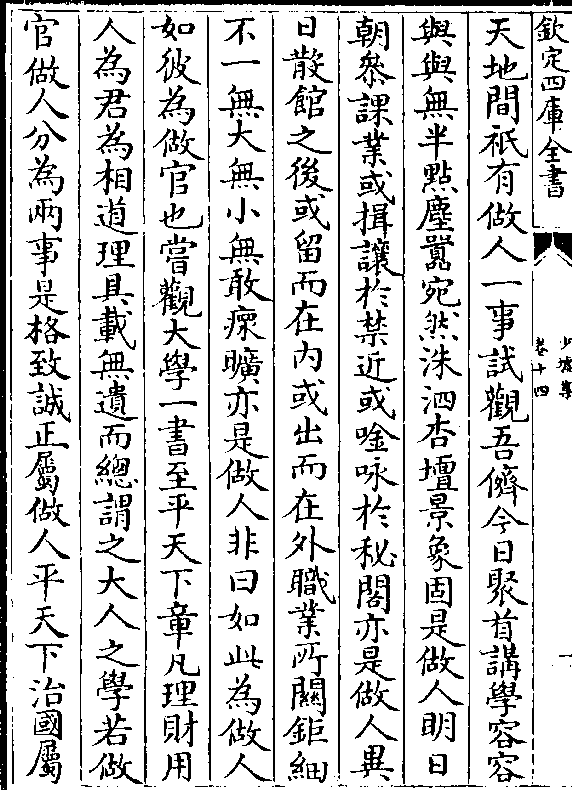 欽定四庫全書
少墟集
卷十四
天地間祗有做人一事試觀吾儕今日聚首講學容容
與與無半點塵囂宛然洙泗杏壇景象固是做人明日
朝叅課業或揖讓於禁近或唫咏於秘閣亦是做人異
日散館之後或留而在内或出而在外職業所關鉅細
不一無大無小無敢瘝曠亦是做人非曰如此為做人
如彼為做官也嘗觀大學一書至平天下章凡理財用
人為君為相道理具載無遺而總謂之大人之學若做
官做人分為兩事是格致誠正屬做人平天下治國屬